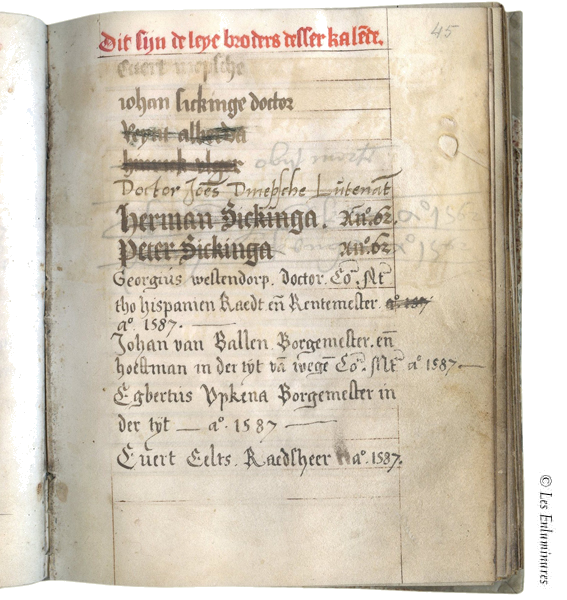 45
Dit sijn de leye broders desser kalēde.
Evert mepsche
iohan sickinge doctor
Reynt alberda
hinrick
Doctor Joēs Dmepsche Lutenāt
herman Sickinga. Anº. 62.
Peter Sickinga Anº. 62
Georgius westendorp. doctor. Co. Mt
tho hispanien Raedt eñ Rentemester. aº. 157
aº. 1587.
Johan van Ballen. Borgemester. eñ
hoeftman in der tyt vā wegē Co. Mt aº 1587
Egbertus Upkena Borgemester in
der tyt — aº. 1587 —
Evert Eelts. Raedsheer aº. 1587.
© Les Enluminures